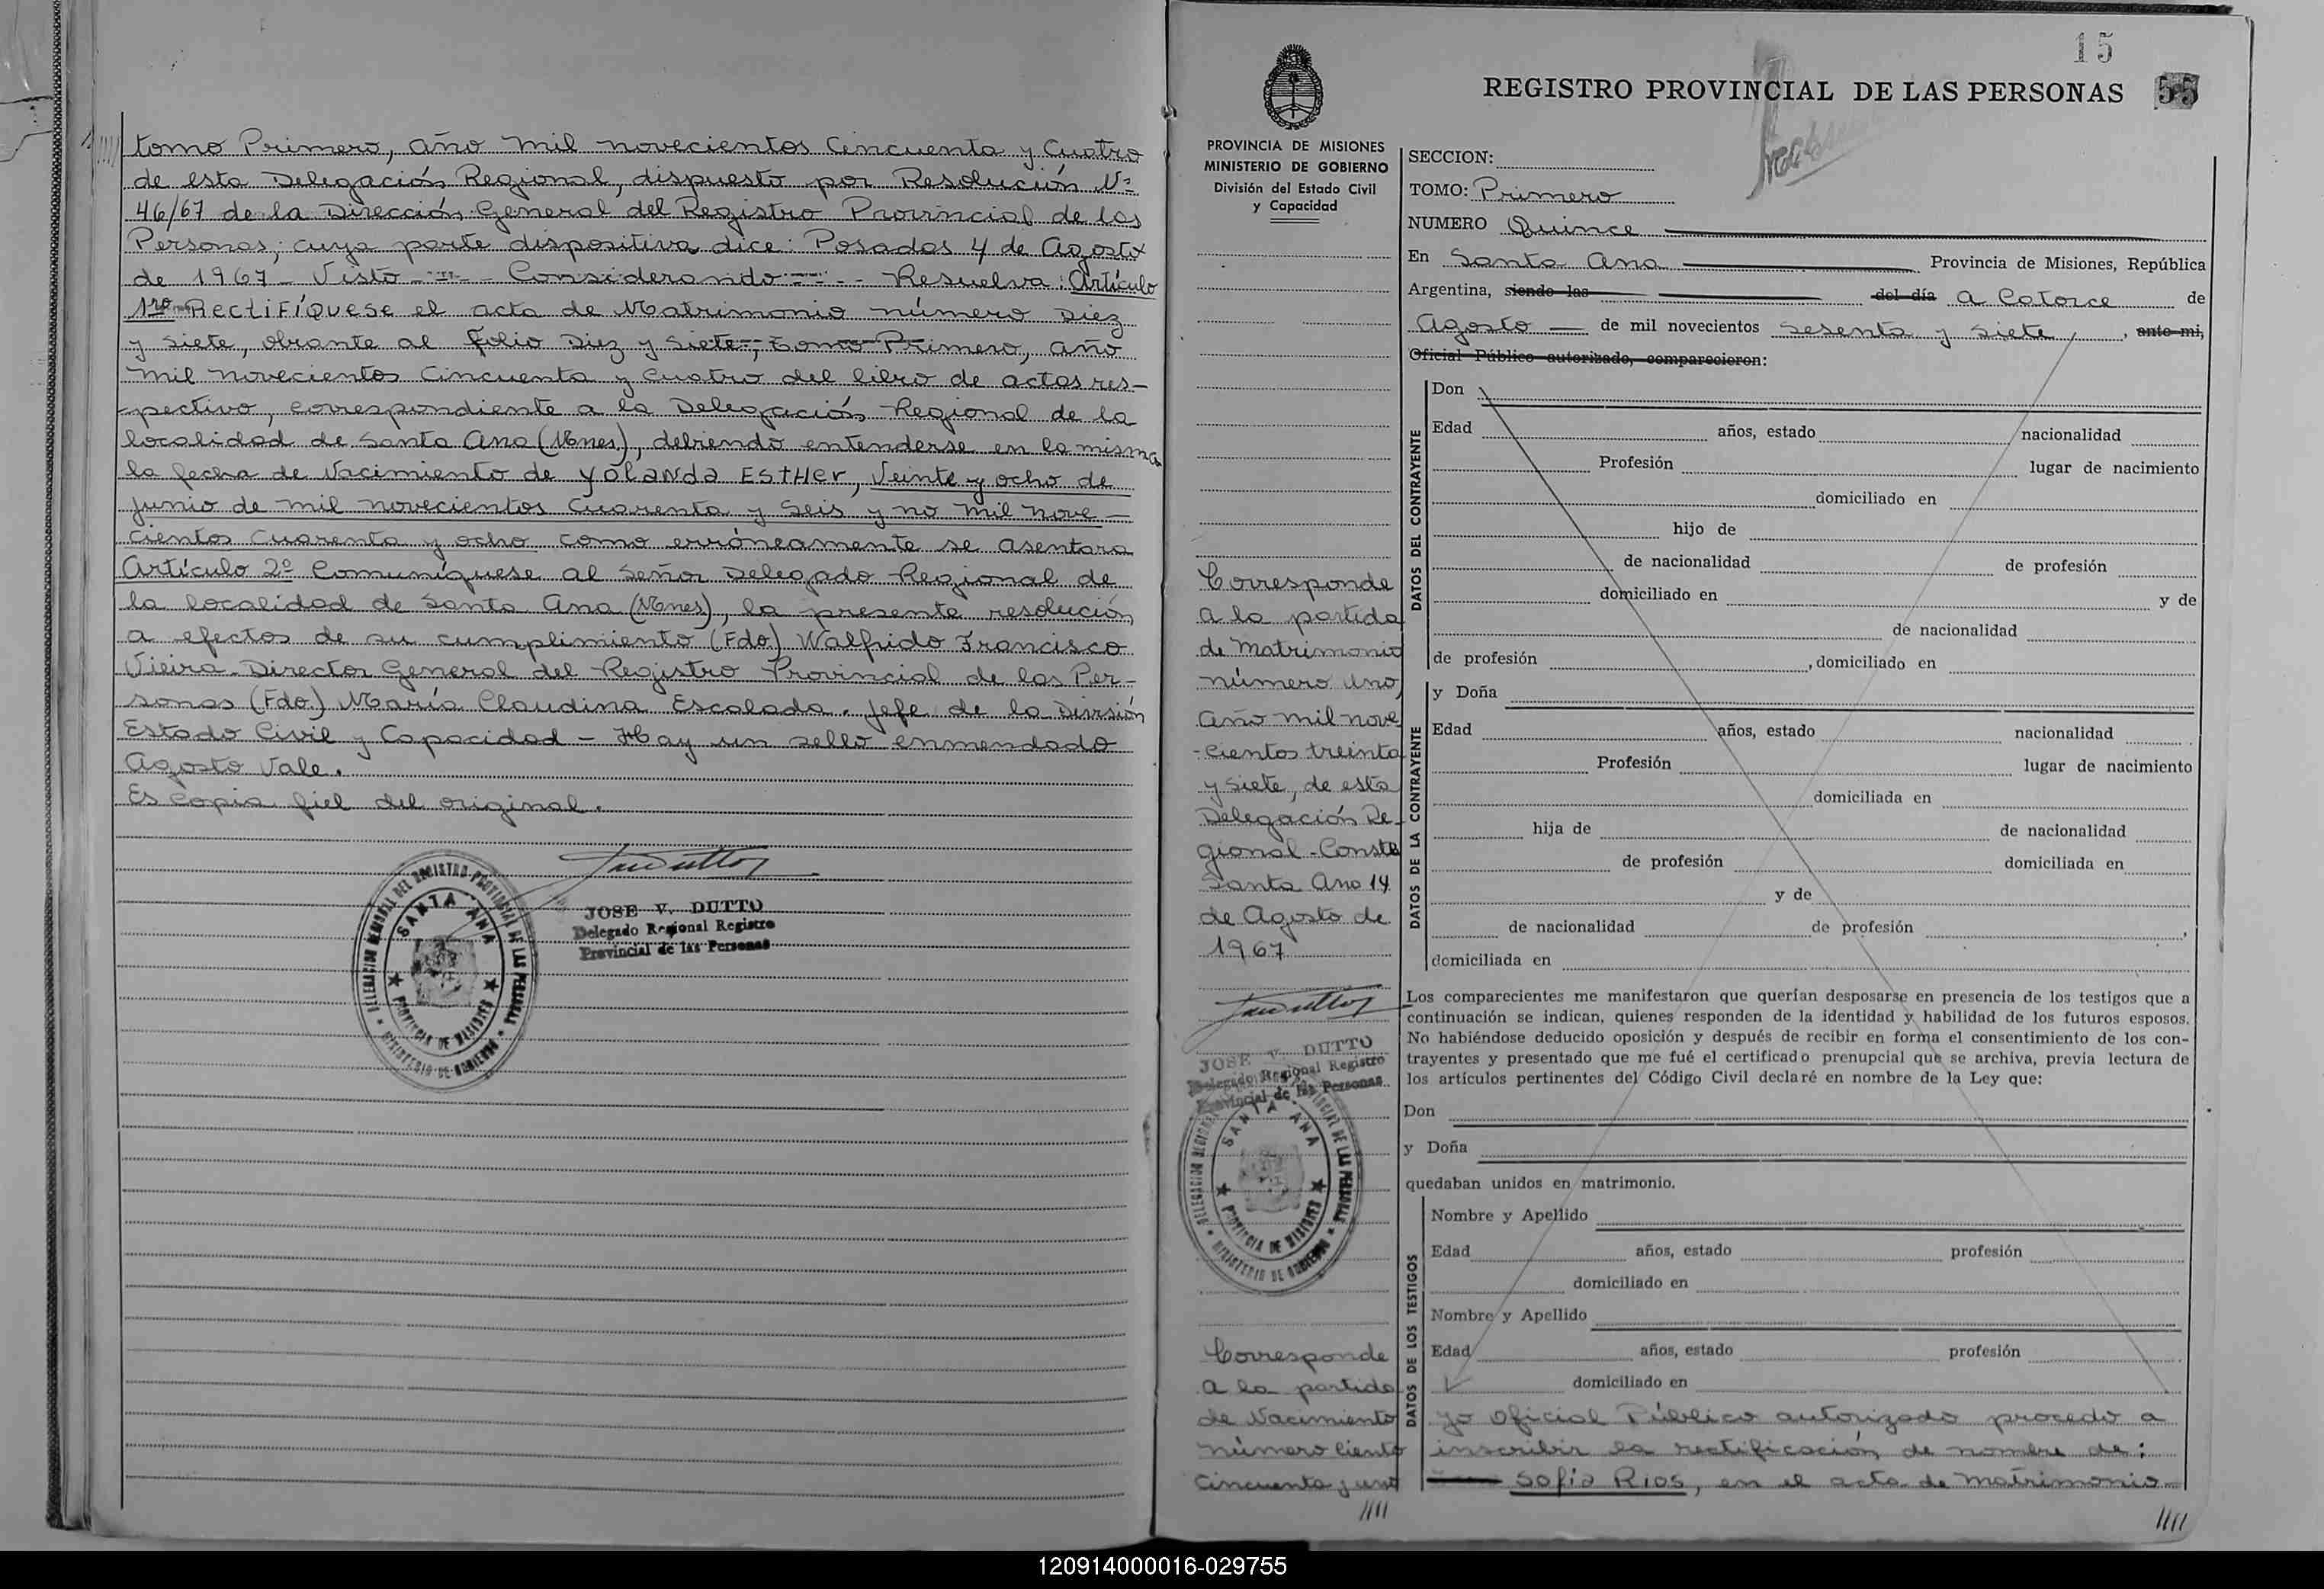 tomo Primero, año mil novecientos Cincuenta y Cuatro
de esta Delegación Regional, dispuesto por Resolución Nº
46/67 de la Dirección General del Registro Provincial de las
Personas, cuya parte dispositiva dice: Posadas 4 de Agosto
de 1967 - Visto - Considerando - Resuelva: Artículo
1ro RECTIFÍQUESE el acta de Matrimonio número Diez
y siete, obrante al Folio Diez y Siete, Tomo Primero, año
mil novecientos Cincuenta y Cuatro del libro de actas res-
-pectivo, correspondiente a la Delegación Regional de la
localidad de Santa Ana (Mnes), debiendo entenderse en la misma
la fecha de Nacimiento de Yolanda Esther, Veinte y ocho de
Junio de mil novecientos Cuarenta y Seis y no mil nove-
cientos Cuarenta y ocho como erróneamente se asentara
Artículo 2º Comuníquese al Señor Delegado Regional de
la localidad de Santa Ana (Mnes), la presente resolución
a efectos de su cumplimiento (Fdo) Walfrido Francisco
Vieira - Director General del Registro Provincial de las Per-
sonas (Fdo.) María Claudina Escalada. Jefe de la División
Estado Civil y Capacidad - Hay un sello enmendado
Agosto Vale.
Es copia fiel del original.
DELEGACION REGIONAL DEL REGISTRO PROVINCIAL DE LAS PERSONAS
MINISTERIO DE GOBIERNO
SANTA ANA
PROVINCIA DE MISIONES
JOSE V. DUTTO
Delegado Regional Registro
Provincial de las Personas
15
REGISTRO PROVINCIAL DE LAS PERSONAS 55
PROVINCIA DE MISIONES
MINISTERIO DE GOBIERNO
División del Estado Civil
y Capacidad
Corresponde
a la partida
de Matrimonio
número uno,
año mil nove
-cientos treinta
y siete, de esta
Delegación Re-
gional - Conste
Santa Ana 14
de Agosto de
1967
JOSE V. DUTTO
Delegado Regional Registro
Provincial de las Personas
SANTA ANA
PROVINCIA DE MISIONES
MINISTERIO DE GOBIERNO
Corresponde
a la partida
de Nacimiento
número ciento
cincuenta y uno
SECCION:
TOMO: Primero
NUMERO Quince
En Santa Ana Provincia de Misiones, República
Argentina, siendo las del día a Catorce de
Agosto de mil novecientos sesenta y siete, ante mi,
Oficial Público autorizado, comparecieron:
DATOS DEL CONTRAYENTE
Don
Edad años, estado nacionalidad
Profesión lugar de nacimiento
domiciliado en
hijo de
de nacionalidad de profesión
domiciliado en y de
de nacionalidad
de profesión , domiciliado en
DATOS DE LA CONTRAYENTE
y Doña
Edad años, estado nacionalidad
Profesión lugar de nacimiento
domiciliada en
hija de de nacionalidad
de profesión domiciliada en
y de
de nacionalidad de profesión ,
domiciliada en
Los comparecientes me manifestaron que querían desposarse en presencia de los testigos que a
continuación se indican, quienes responden de la identidad y habilidad de los futuros esposos.
No habiéndose deducido oposición y después de recibir en forma el consentimiento de los con-
trayentes y presentado que me fué el certificado prenupcial que se archiva, previa lectura de
los artículos pertinentes del Código Civil declaré en nombre de la Ley que:
Don
y Doña
quedaban unidos en matrimonio.
DATOS DE LOS TESTIGOS
Nombre y Apellido
Edad años, estado profesión
domiciliado en
Nombre y Apellido
Edad años, estado profesión
domiciliado en
yo Oficial Público autorizado procedo a
inscribir la rectificación de nombre de:
Sofía Rios, en el acta de matrimonio
120914000016-029755